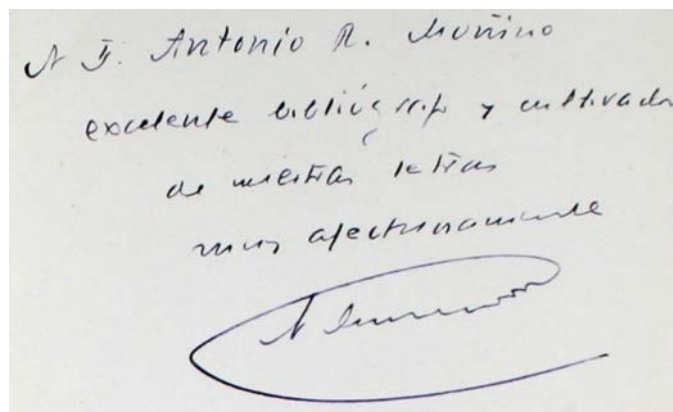 A D. Antonio R. Moñino
excelente bibliógrafo y cultivador
de nuestras letras
muy afectuosamente